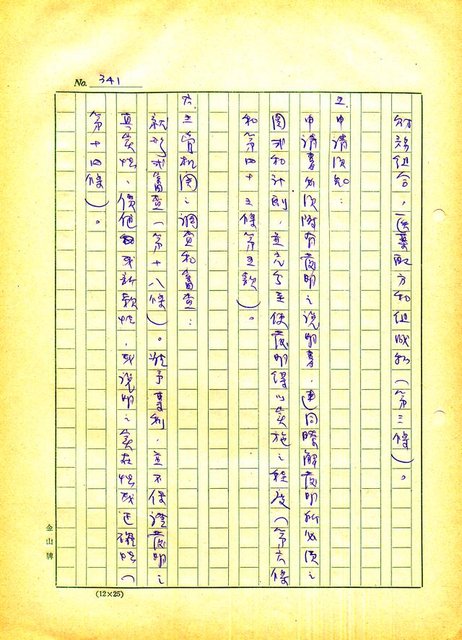 No. 341
組合，醫藥配方和組成物（第三條）。
五、申請須知：
申請書必須附有發明之說明書，連同瞭解發明所必須之
圖式和計劃，並充分至使發明得以實施之程度（第六條
和第四十三條第五款）。
六、主管机関之調查和審查：
祇形式審查（第十八條）。雖予專利，並不保證發明之
真実性、優他或新歀性，或說明之実在性或正確性（
第十四條）。
金山牌
(12×25)